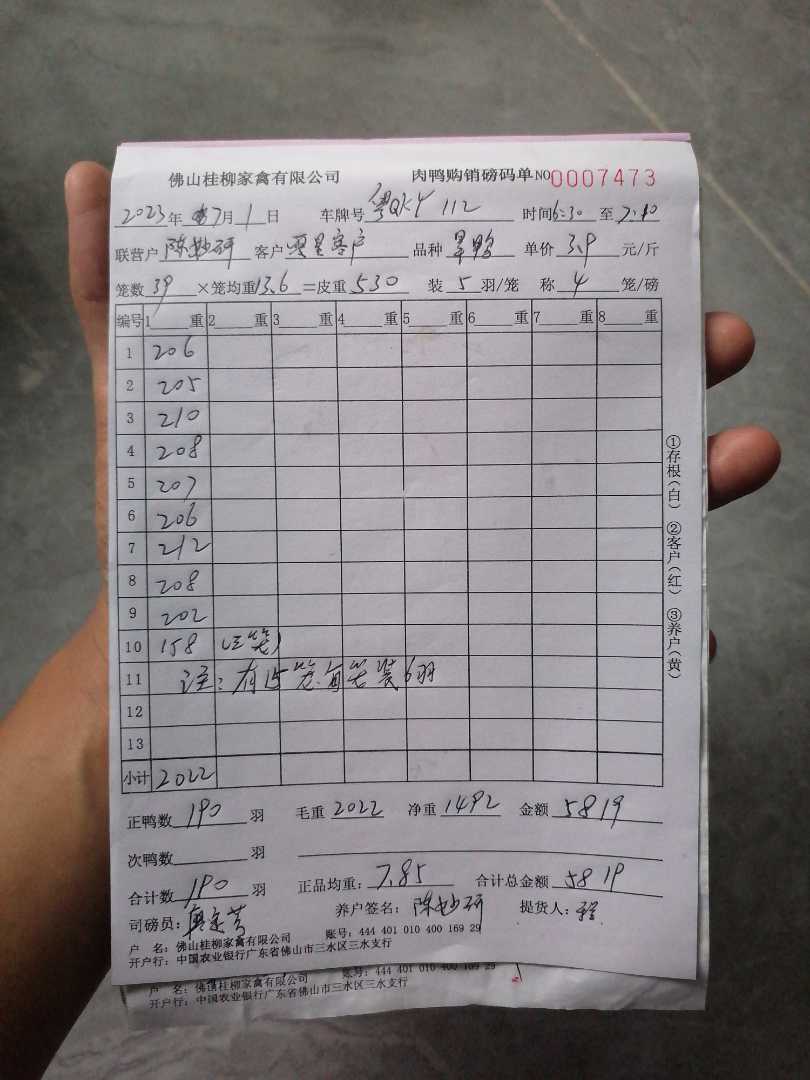 佛山桂柳家禽有限公司 肉鸭购销磅码单 NO 0007473
2023年 7月1日 车牌号 粤QKY 112 时间6:30至7:10
联营户 陈妙研 客户 客户 品种 旱鸭 单价 3.9 元/斤
笼数 39 ×笼均重13.6 =皮重 530 装 5 羽/笼 称 4 笼/磅
编号 1 重 2 重 3 重 4 重 5 重 6 重 7 重 8 重
1 206
2 205
3 210
4 208
5 207
6 206
7 212
8 208
9 202
10 158 (三笼)
11 注:有 笼每笼装6羽
12
13
小计 2022
正鸭数 190 羽 毛重 2022 净重 1492 金额 5819
次鸭数 羽
合计数 190 羽 正品均重: 7.85 合计总金额 5819
司磅员: 养户签名: 陈妙研 提货人:
户 名: 佛山桂柳家禽有限公司 账号: 444 401 010 400 169 29
开户行: 中国农业银行广东省佛山市三水区三水支行
①存根(白) ②客户(红) ③养户(黄)
户 名: 佛山桂柳家禽有限公司 账号: 444 401 010 400 169 29
开户行: 中国农业银行广东省佛山市三水区三水支行